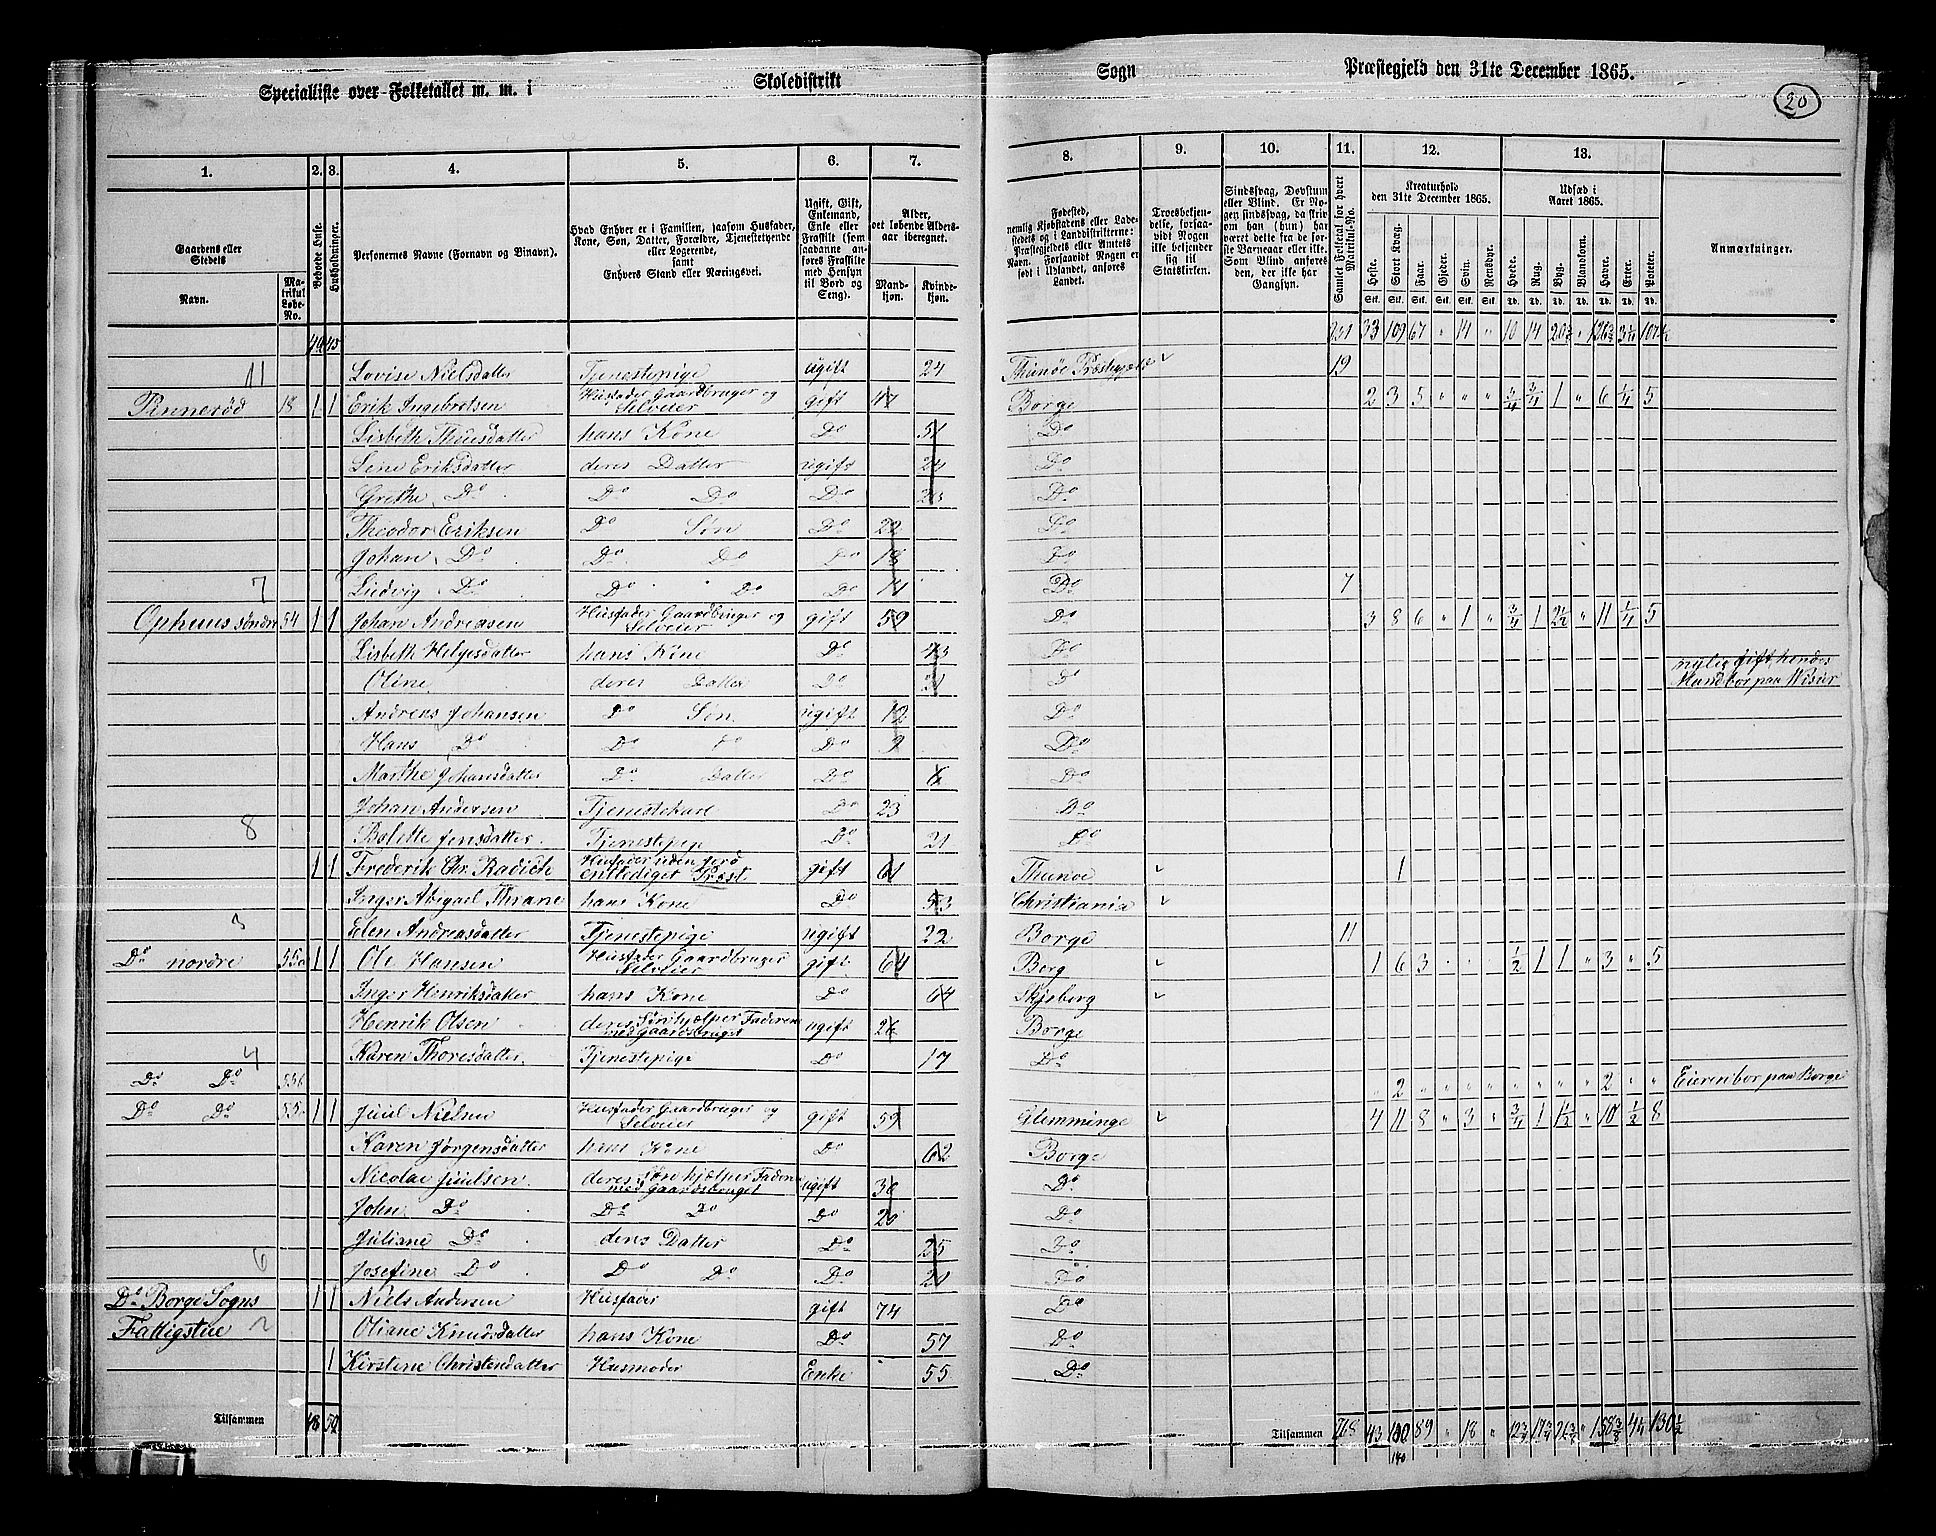 Specialliste over Folketallet m. m. i Skoledistrikt Sogn Præstegjeld den 31te December 1865.
20
1. 2. 3. 4. 5. 6. 7. 8. 9. 10. 11. 12. 13.
Gaardens eller Stedets
Navn.
Matrikul Løbe-No.
Beboede Huse.
Husholdninger.
Personernes Navne (Fornavn og Binavn).
Hvad Enhver er i Familien, saasom Husfader, Kone, Søn, Datter, Forældre, Tjenestetyende eller Logerende, samt Enhvers Stand eller Næringsvei.
Ugift, Gift, Enkemand, Enke eller Fraskilt (som saadanne anføres Fraskilte med Hensyn til Bord og Seng).
Alder, det løbende Aldersaar iberegnet.
Mandkjøn. Kvindekjøn.
Fødested, nemlig Kjøbstadens eller Ladestedets og i Landdistrikterne: Præstegjeldets eller Amtets Navn. Forsaavidt Nogen er født i Udlandet, anføres Landet.
Troesbekjendelse, forsaavidt Nogen ikke bekjender sig til Statskirken.
Sindssvag, Døvstum eller Blind. Er Nogen sindssvag, da skriv om han (hun) har været det fra de første Barneaar eller ikke. Som Blind anføres den, der ikke har Gangsyn.
Samlet Folketal for hvert Matrikul-No.
Kreaturhold den 31te December 1865.
Heste. Stort Kvæg. Faar. Gjeder. Svin. Rensdyr.
Udsæd i Aaret 1865.
Hvede. Rug. Byg. Blandkorn. Havre. Erter. Poteter.
Anmærkninger.
33 109 67 " 14 " 10 14
11 Lovise Nielsdatter Tjenestepige ugift 24 Thunøe Præstegjeld 19
Pinnerød 18 1 1 Erik Ingebretsen Husfader Gaardbruger og Selveier gift 47 Borge 2 3 5 " " " 3/4 3/4 1 " 6 1/4 5
Lisbeth Thuesdatter hans Kone Do 51 Do
Lene Eriksdatter deres Datter ugift 24 Do
Grethe Do Do Do Do Do
Theodor Eriksen Do Søn Do 22 Do
Johan Do Do Do Do 18 Do
7 Ludvig Do Do Do Do 14 Do 7
Ophuus søndre 54 1 1 Johan Andreasen Husfader Gaardbruger og Selveier gift 59 Do 3 8 6 " 1 " 3/4 1 2 1/2 " 11 1/4 5
Lisbeth Helgesdatter hans Kone Do 43 Do
Oline deres Datter Do 21 Do nylig gift hendes Mand bor paa Wisur
Andreas Johansen Do Søn ugift 12 Do
Hans Do Do Do Do 9 Do
Marthe Johansdatter Do Datter Do 6 Do
Johan Andersen Tjenestekarl Do 23 Do
8 Bolette Jensdatter Tjenestepige Do 21 Do
1 1 Frederik Chr. Radich Husfader uden Jord entlediget Præst gift 61 Thunøe 1
Inger Abigael Thrane hans Kone Do 53 Christiania
3 Elen Andreasdatter Tjenestepige ugift 22 Borge 11
Do nordre 55a 1 1 Ole Hansen Husfader Gaardbruger Selveier gift 64 Berg 1 6 3 " " " 1/2 1 1 " 3 " 5
Inger Henriksdatter hans Kone Do 64 Skjeberg
Henrik Olsen deres Søn hjælper Faderen med Gaardsbruget ugift 26 Borge
4 Karen Thoresdatter Tjenestepige Do 17 Do
Do Do 55b " 2 " " " " " " " " 2 " " Eieren bor paa Borge
Do Do 55 1 1 Juul Nielsen Husfader Gaardbruger og Selveier gift 59 Glemminge 4 11 8 " 3 " 3/4 1 1 1/2 " 10 1/2 8
Karen Jørgensdatter hans Kone Do 62 Borge
Nicolai Juulsen deres Søn hjælper Faderen med Gaardsbruget ugift 36 Do
John Do Do Do Do 20 Do
Juliane Do deres Datter Do 25 Do
6 Josefine Do Do Do Do 21 Do
Do Borge Sogns 1 1 Niels Andersen Husfader gift 74 Do
Fattigstue 2 Oliane Knudsdatter hans Kone Do 57 Do
1 Kirstine Christendatter Husmoder Enke 55 Do
Tilsammen 48 Tilsammen 268 43 89 " 18 "
140